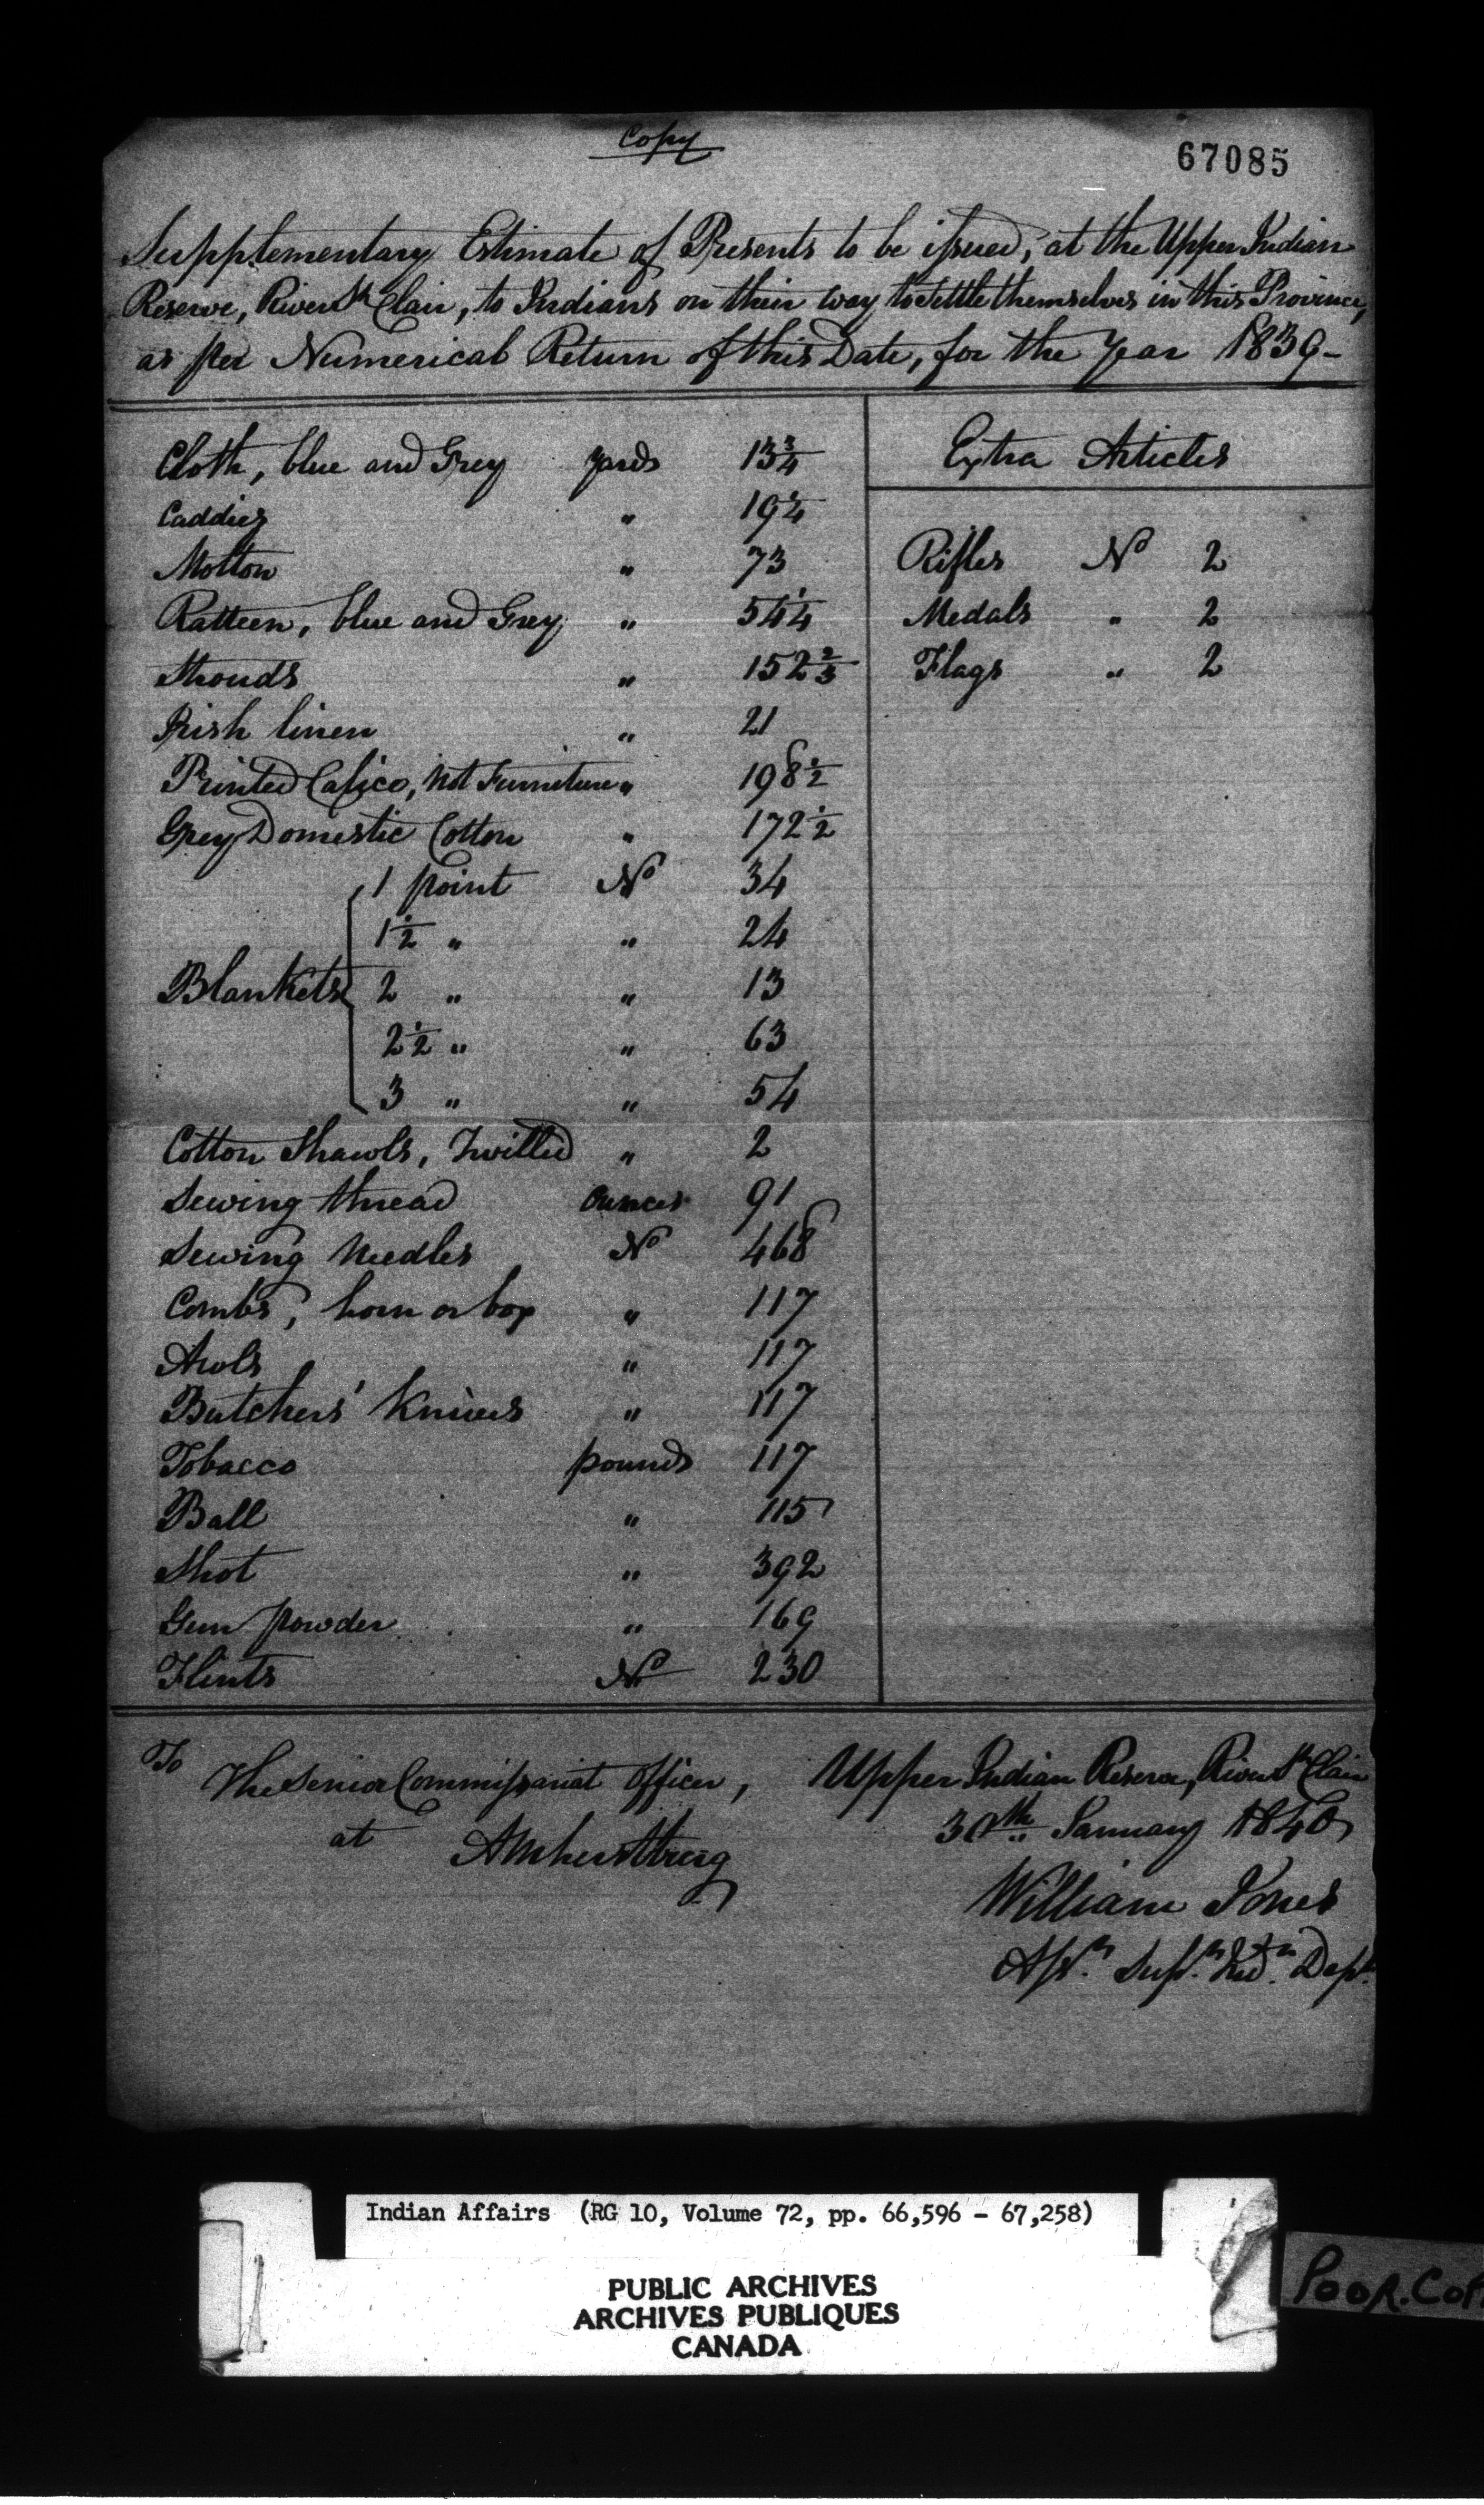 Copy
67085
Supplementary Estimate of Presents to be issued, at the Upper Indian
Reserve, River St Clair, to Indians on their way to settle themselves in this Province,
as per Numerical Return of this Date, for the Year 1839-
Cloth, blue and Grey yards 13 3/4
Caddies " 19 1/4
Molton " 73
Ratteen, blue and Grey " 54 1/4
Strouds " 152 2/3
Irish linen " 21
Printed Calico, Not Furniture " 198 1/2
Grey Domestic Cotton " 172 1/2
1 point No 34
1 1/2 " " 24
Blankets 2 " " 13
2 1/2 " " 63
3 " " 54
Cotton Shawls, Twilled " 2
Sewing thread Ounces 91
Sewing Needles No 468
Combs, horn or box " 117
Awls " 117
Butchers' Knives " 117
Tobacco pounds 117
Ball " 115
Shot " 392
Gun powder " 169
Flints No 230
Extra Articles
Rifles No 2
Medals " 2
Flags " 2
To
The Senior Commissariat Officer,
at Amherstburg
Upper Indian Reserve, River St Clair
30th January 1840
William Jones
Asst. Supt. Ind. Dept.
Indian Affairs (RG 10, Volume 72, pp. 66,596 - 67,258)
PUBLIC ARCHIVES
ARCHIVES PUBLIQUES
CANADA
POOR.COP